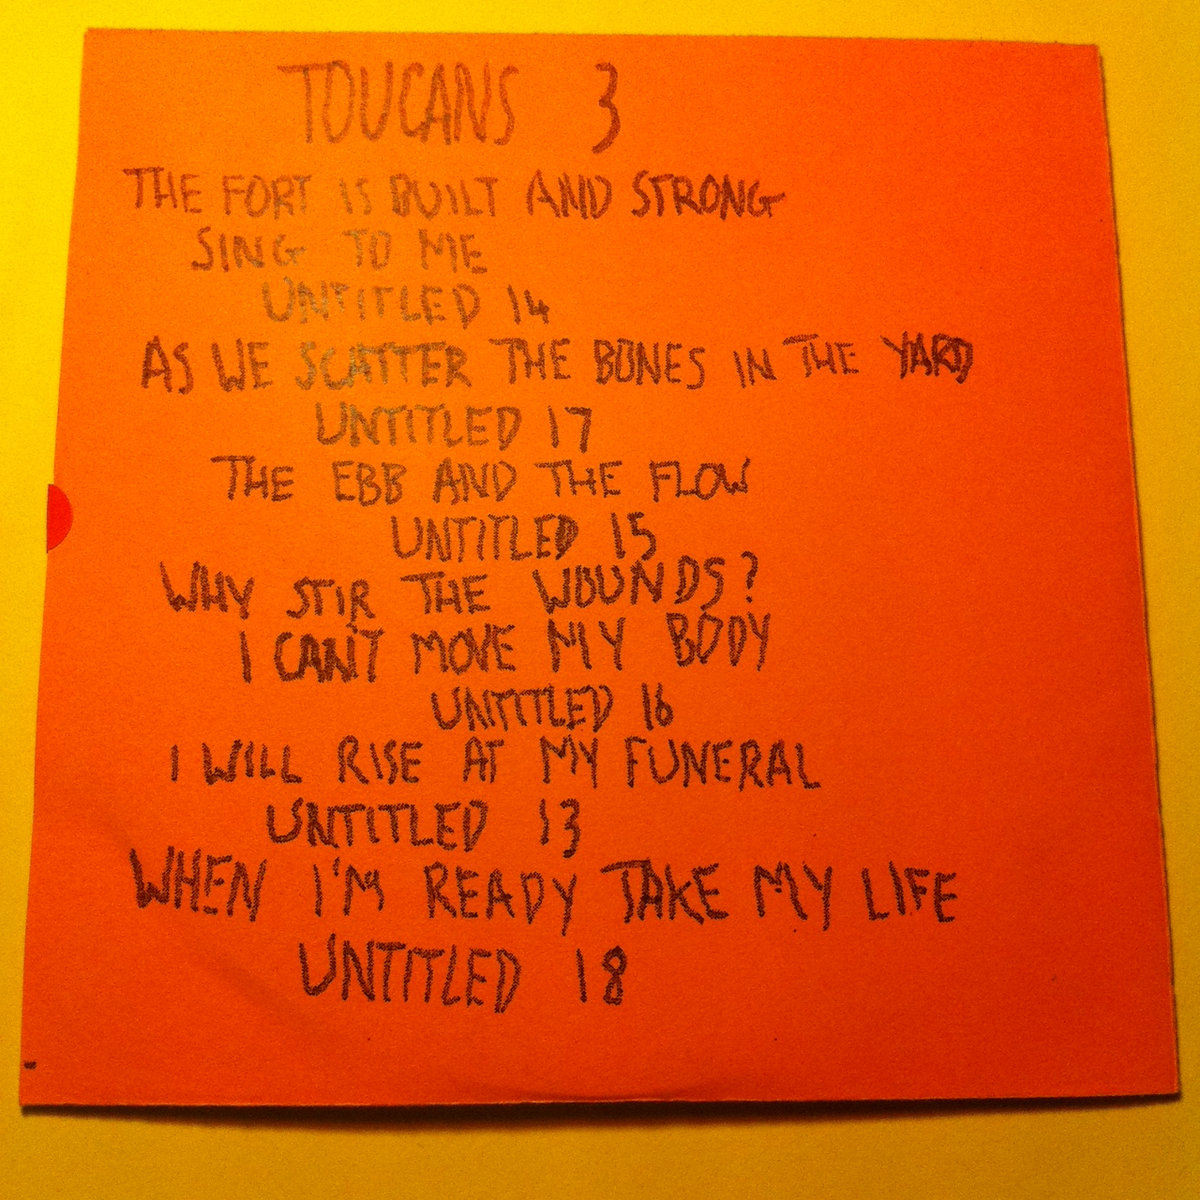 TOUCANS 3
THE FORT IS BUILT AND STRONG
SING TO ME
UNTITLED 14
AS WE SCATTER THE BONES IN THE YARD
UNTITLED 17
THE EBB AND THE FLOW
UNTITLED 15
WHY STIR THE WOUNDS?
I CAN'T MOVE MY BODY
UNTITLED 16
I WILL RISE AT MY FUNERAL
UNTITLED 13
WHEN I'M READY TAKE MY LIFE
UNTITLED 18